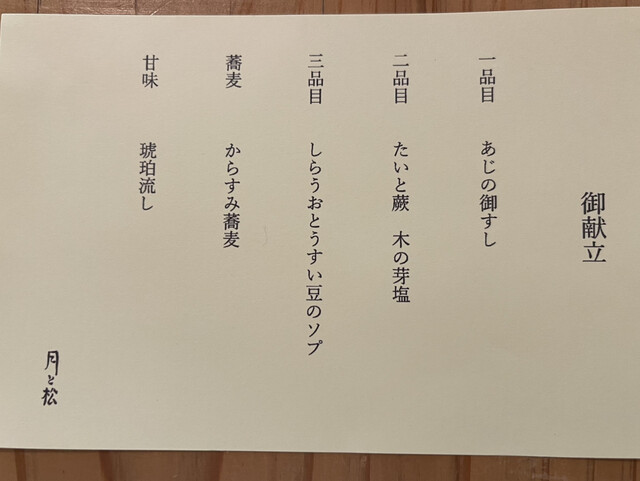 御献立
一品目 あじの御すし
二品目 たいと蕨 木の芽塩
三品目 しらうおとうすい豆のソプ
蕎麦 からすみ蕎麦
甘味 琥珀流し
月と松